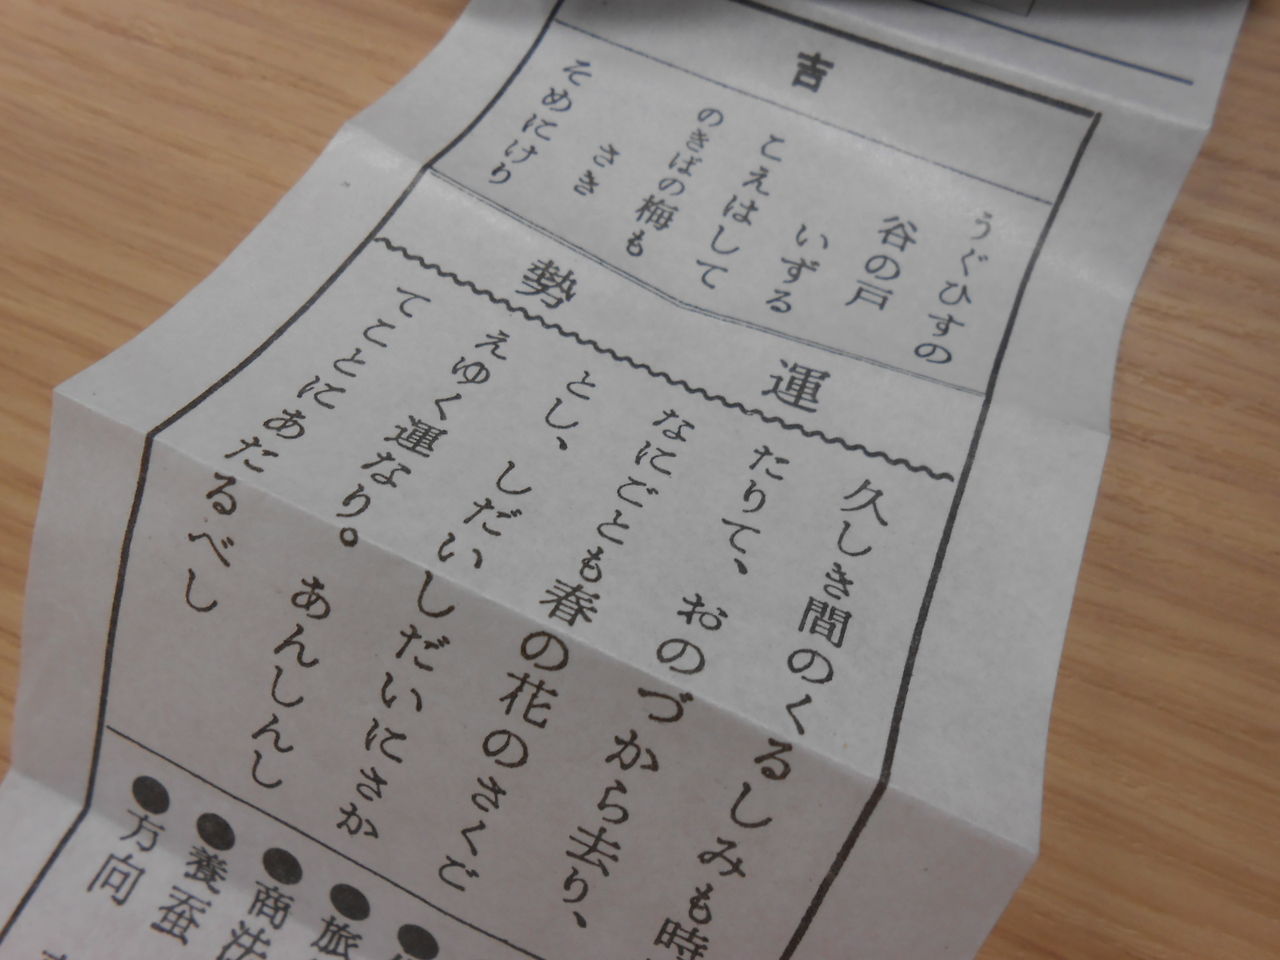 吉
うぐひすの
谷の戸
いずる
こえはして
のきばの梅も
さき
そめにけり
運勢
久しき間のくるしみも時
たりて、おのづから去り、
なにごとも春の花のさくご
とし、しだいしだいにさか
えゆく運なり。あんしんし
てことにあたるべし
●旅
●商法
●養蚕
●方向